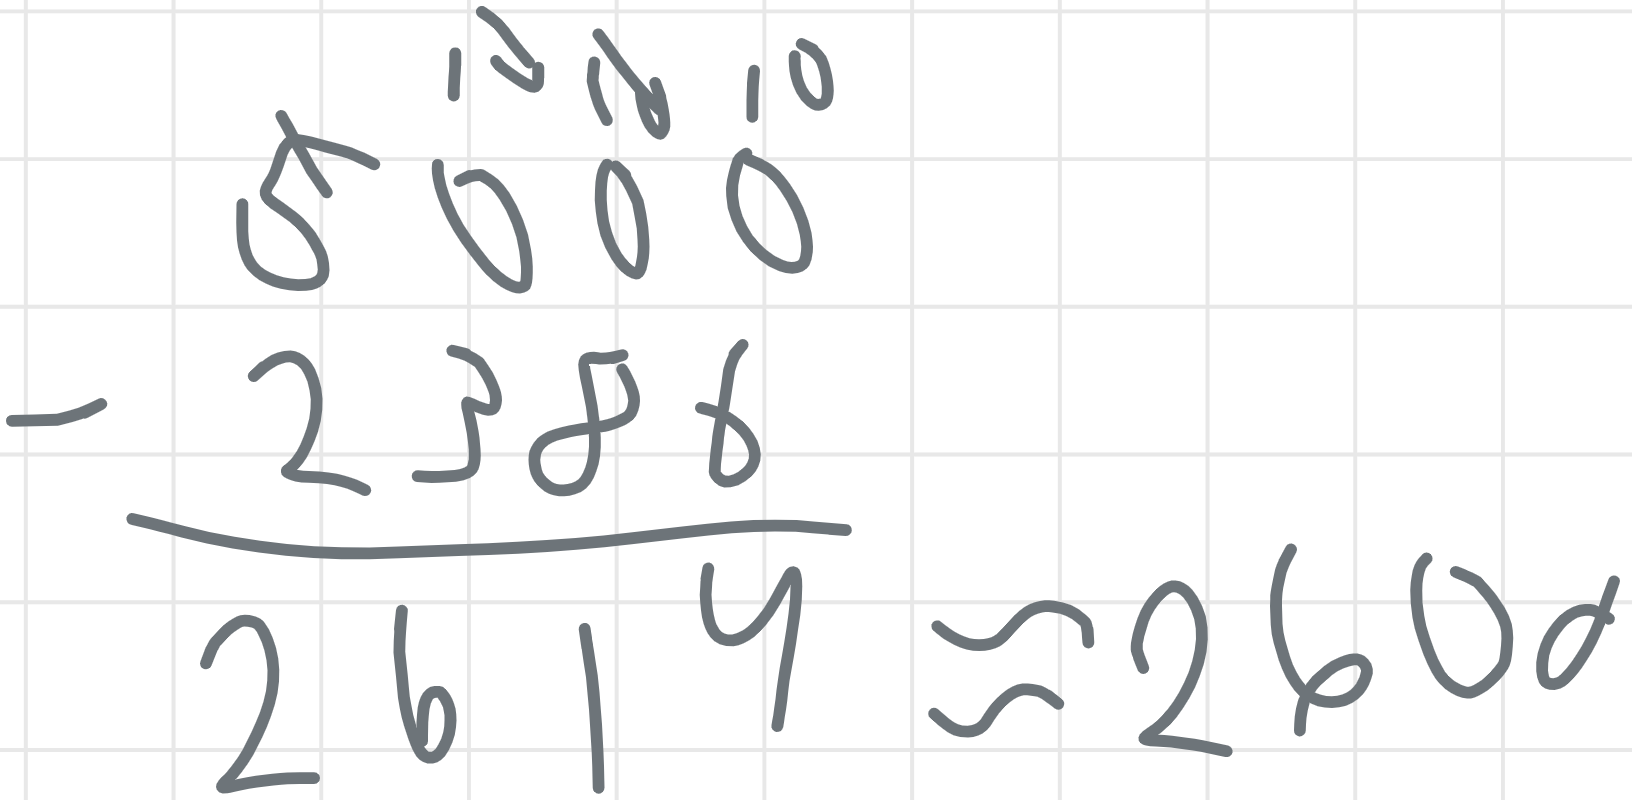 10 10 10
5000
- 2386
2614 ≈ 2600